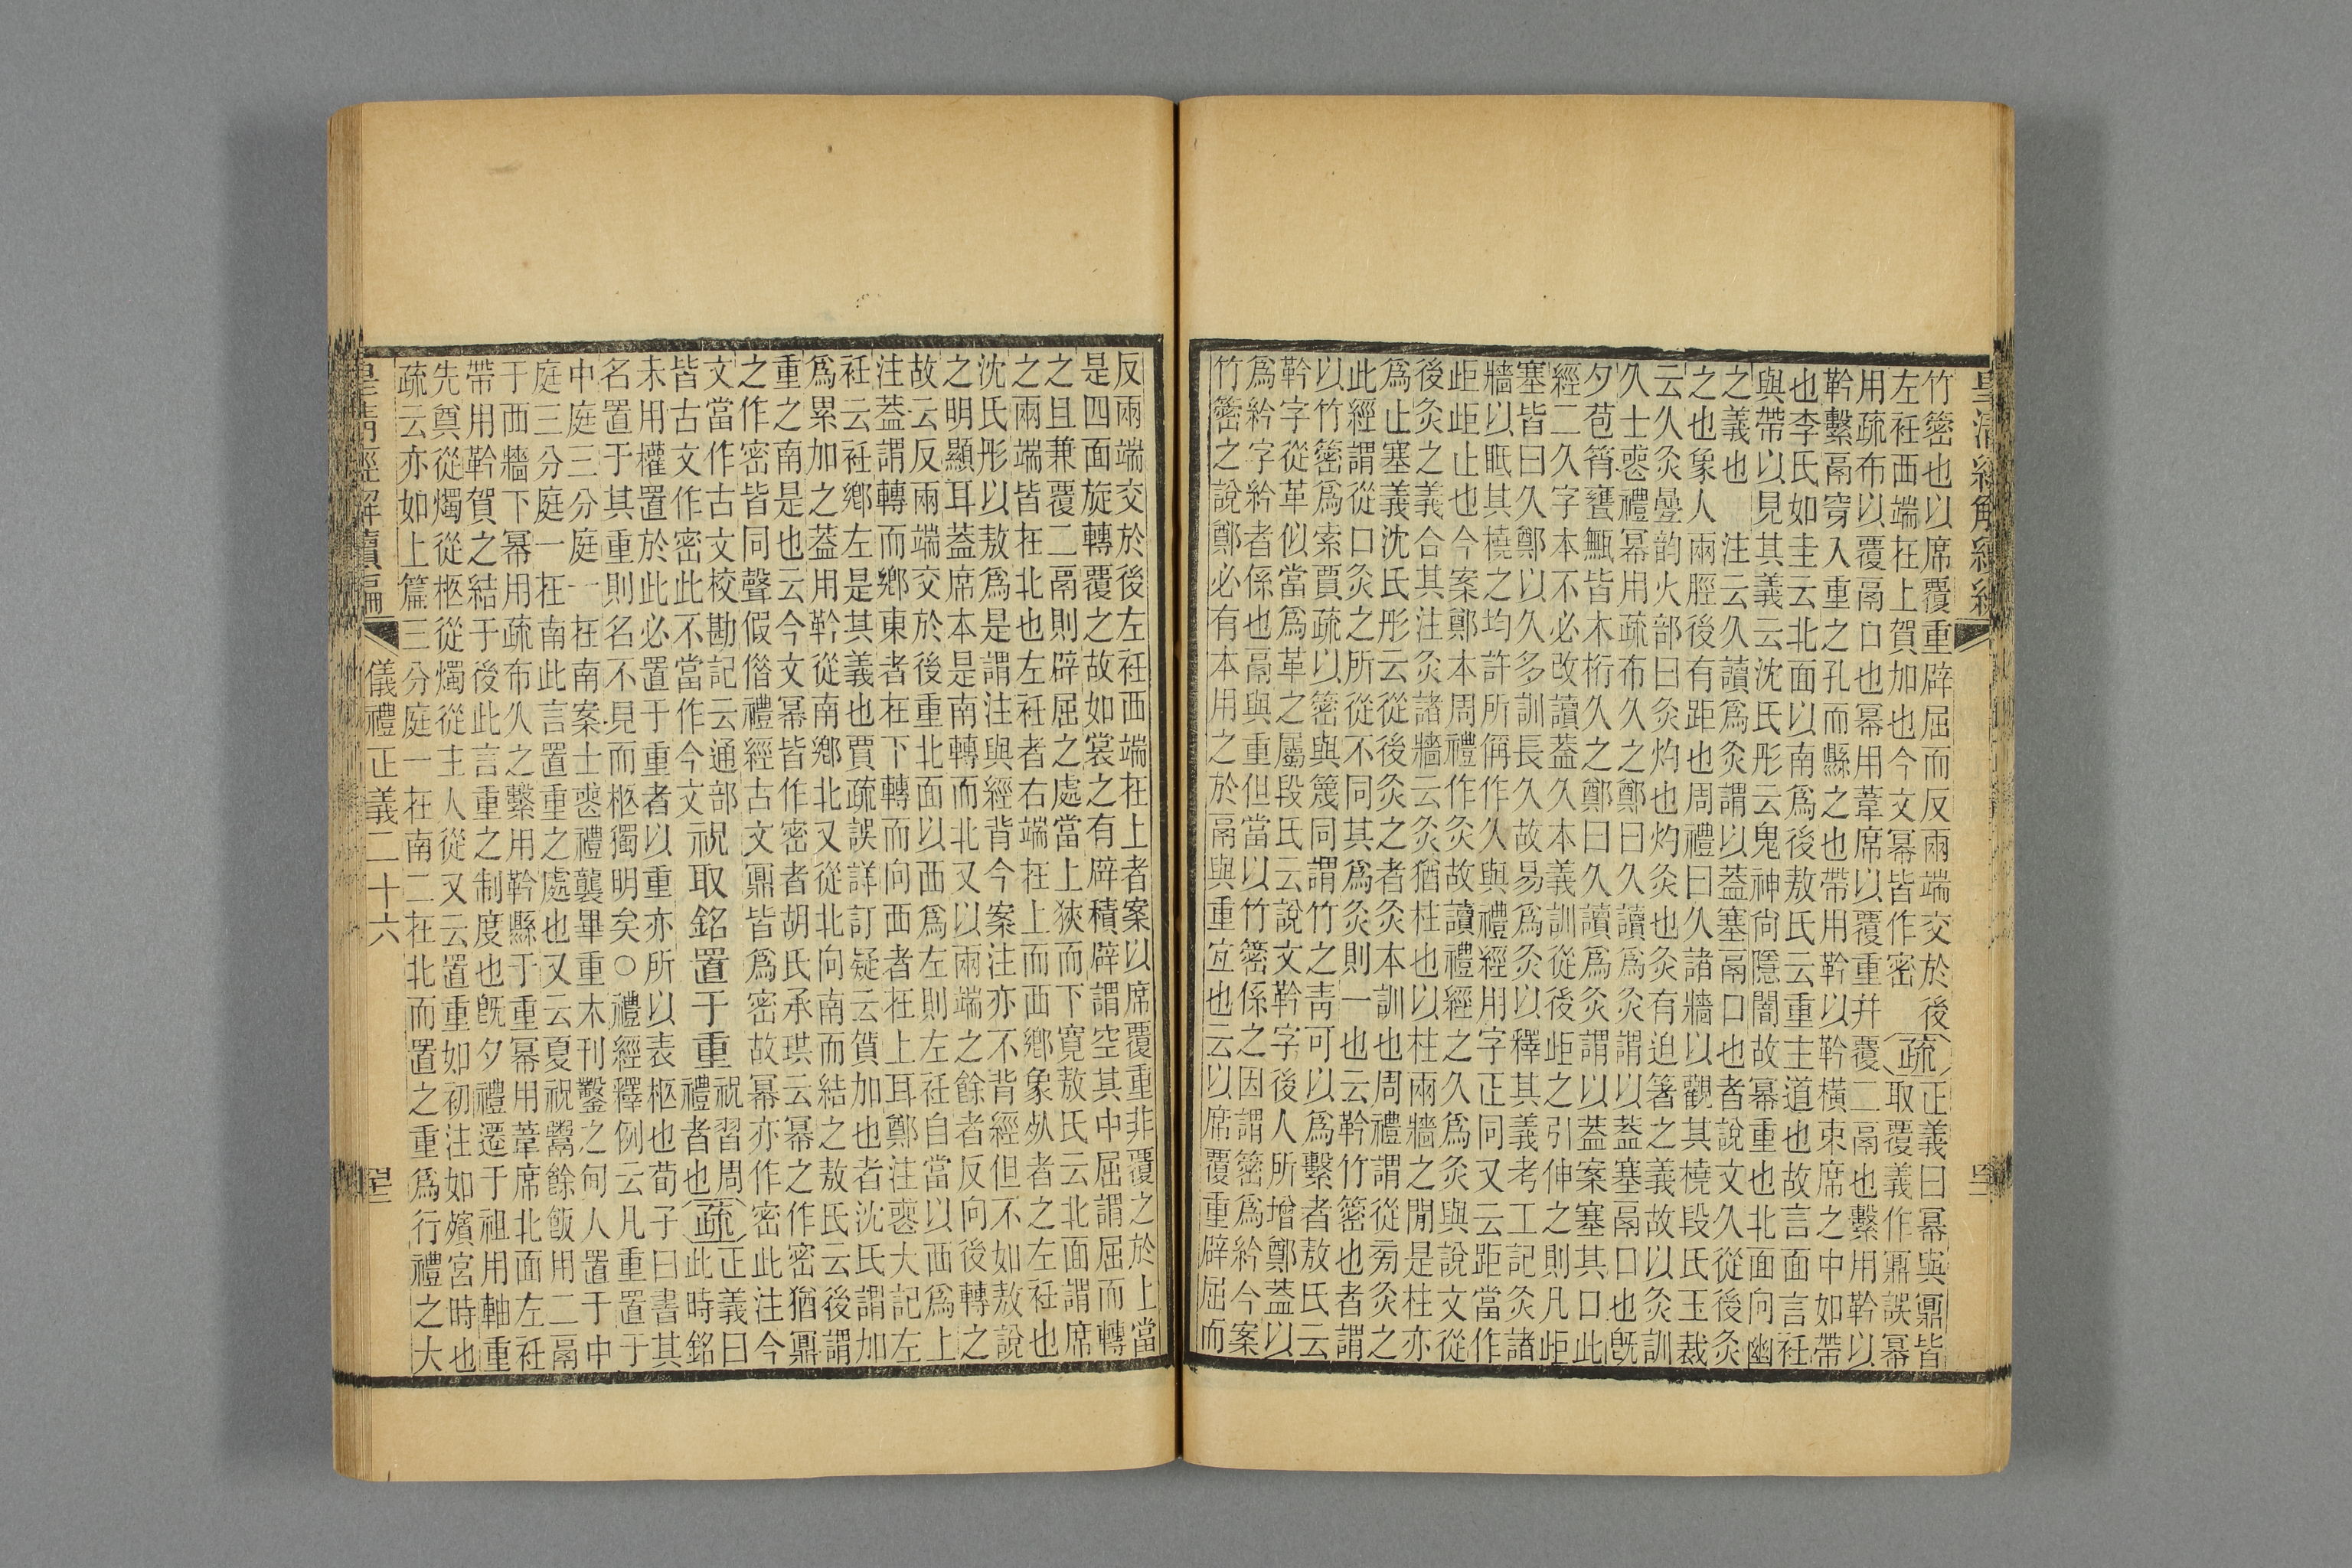 竹䈼也以席覆重辟屈而反兩端交於後
左衽西端在上賀加也今文冪皆作密
疏
正義曰冪與鼏皆
取覆義作鼏誤冪
用疏布以覆鬲口也冪用葦席以覆重并覆二鬲也繫用靲以
靲繫鬲穿入重之孔而縣之也帶用靲以靲橫束席之中如帶
也李氏如圭云北面以南爲後敖氏云重主道也故言面言衽
與帶以見其義云沈氏彤云鬼神尙隱闇故冪重也北面向幽
之義也　注云久讀爲灸謂以蓋塞鬲口也者說文久從後灸
之也象人兩脛後有距也周禮曰久諸牆以觀其橈段氏玉裁
云久灸曡韵火部曰灸灼也灼灸也灸有迫箸之義故以灸訓
久士喪禮冪用疏布久之鄭曰久讀爲灸謂以蓋塞鬲口也旣
夕苞筲甕甒皆木桁久之鄭曰久讀爲灸謂以蓋案塞其口此
經二久字本不必改讀蓋久本義訓從後歫之引伸之則凡歫
塞皆曰久鄭以久多訓長久故易爲灸以釋其義考工記灸諸
牆以眂其橈之均許所偁作久與禮經用字正同又云距當作
歫歫止也今案鄭本周禮作灸故讀禮經之久爲灸與說文從
後灸之義合其注灸諸牆云灸猶柱也以柱兩牆之閒是柱亦
爲止塞義沈氏彤云從後灸之者灸本訓也周禮謂從旁灸之
此經謂從口灸之所從不同其爲灸則一也云靲竹䈼也者謂
以竹䈼爲索賈疏以䈼與篾同謂竹之靑可以爲繫者敖氏云
靲字從革似當爲革之屬段氏云說文靲字後人所增鄭蓋以
爲紟字紟者係也鬲與重但當以竹䈼係之因謂䈼爲紟今案
竹䈼之說鄭必有本用之於鬲與重宜也云以席覆重辟屈而
反兩端交於後左衽西端在上者案以席覆重非覆之於上當
是四面旋轉覆之故如裳之有辟積辟謂空其中屈謂屈而轉
之且兼覆二鬲則辟屈之處當上狹而下寬敖氏云北面謂席
之兩端皆在北也左衽者右端在上而西鄉象死者之左衽也
沈氏彤以敖爲是謂注與經背今案注亦不背經但不如敖說
之明顯耳蓋席本是南轉而北又以兩端之餘者反向後轉之
故云反兩端交於後重北面以西爲左則左衽自當以西爲上
注蓋謂轉而鄉東者在下轉而向西者在上耳鄭注喪大記左
衽云衽鄉左是其義也賈疏誤詳訂疑云賀加也者沈氏謂加
爲累加之蓋用靲從南鄉北又從北向南而結之敖氏云後謂
重之南是也云今文冪皆作密者胡氏承珙云冪之作密猶鼏
之作密皆同聲假借禮經古文鼏皆爲密故冪亦作密此注今
文當作古文校勘記云通部
皆古文作密此不當作今文
祝取銘置于重
祝習周
禮者也
疏
正義曰
此時銘
未用權置於此必置于重者以重亦所以表柩也荀子曰書其
名置于其重則名不見而柩獨明矣○禮經釋例云凡重置于
中庭三分庭一在南案士喪禮襲畢重木刊鑿之甸人置于中
庭三分庭一在南此言置重之處也又云夏祝鬻餘飯用二鬲
于西牆下冪用疏布久之繫用靲縣于重冪用葦席北面左衽
帶用靲賀之結于後此言重之制度也旣夕禮遷于祖用軸重
先奠從燭從柩從燭從主人從又云置重如初注如殯宮時也
疏云亦如上篇三分庭一在南二在北而置之重爲行禮之大
皇淸經解續編
儀禮正義二十六